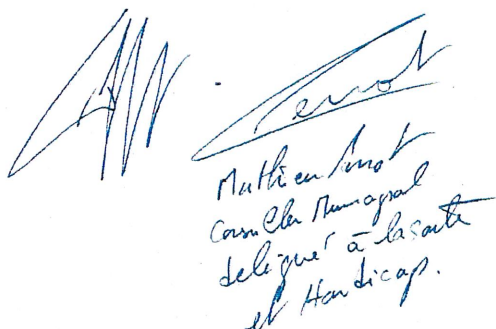 Pernot
Mathieu Pernot
Conseiller Municipal
délégué à la santé
et Handicap.